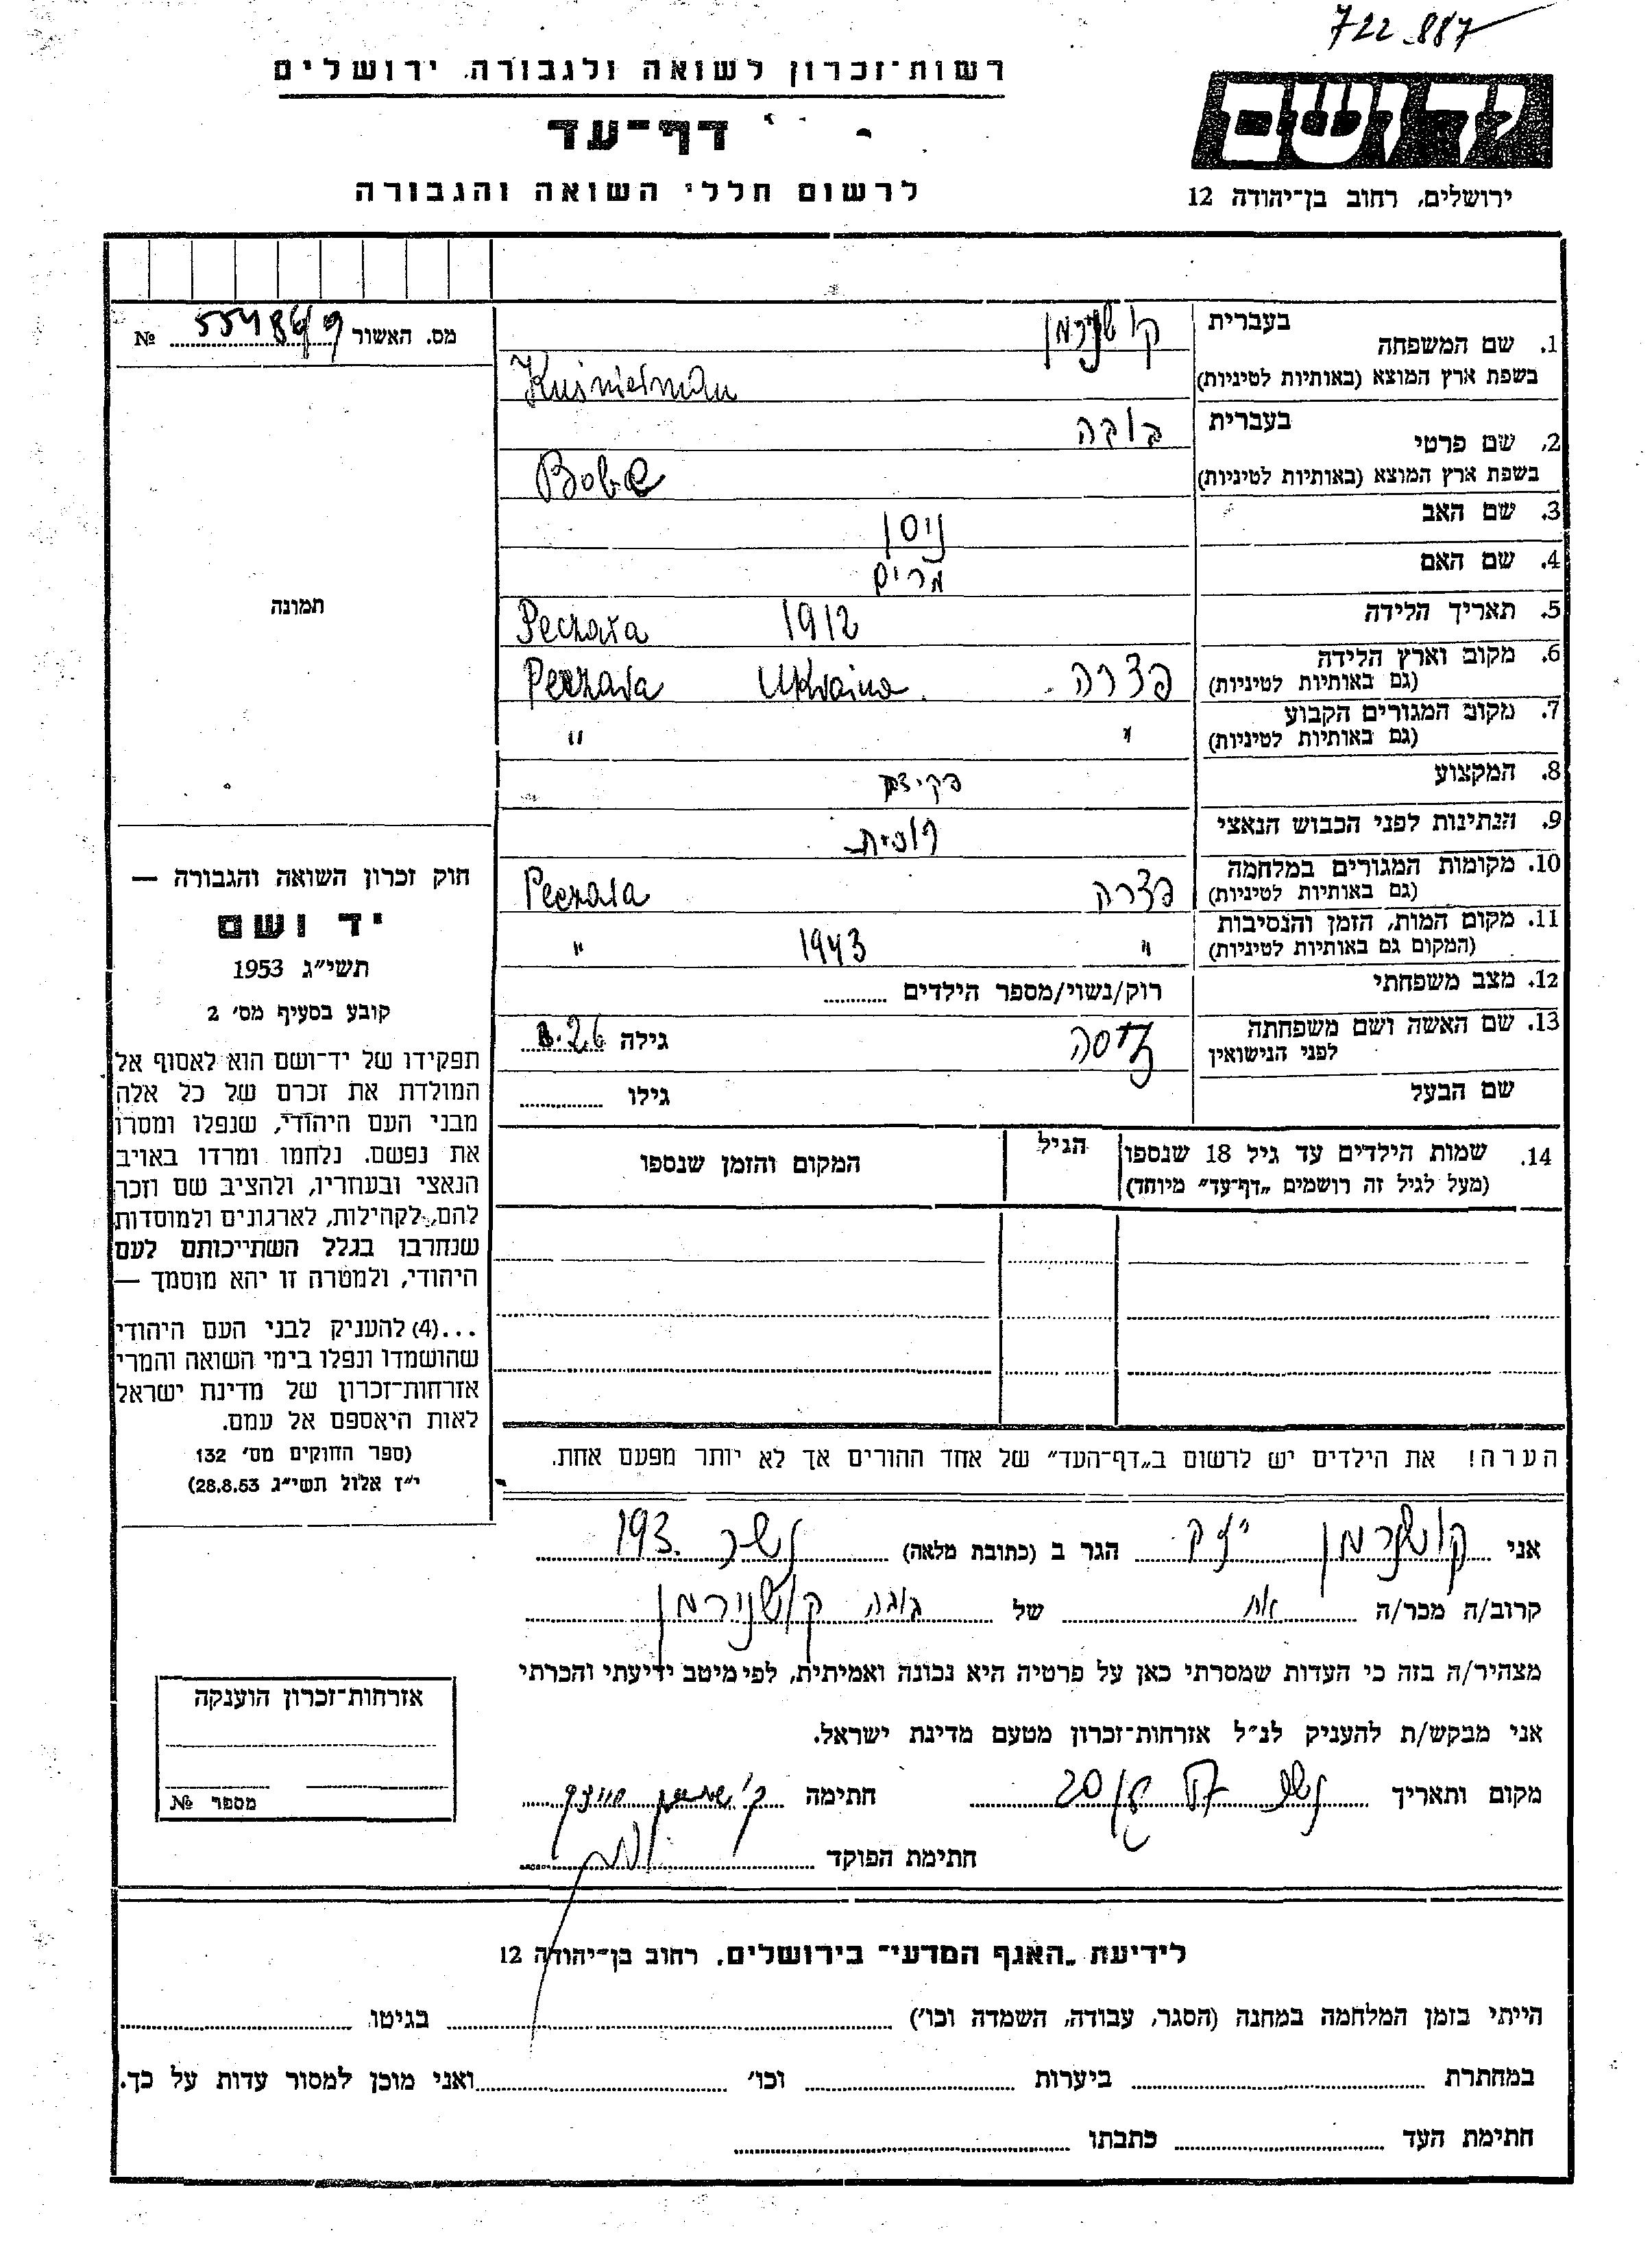 722.887
רשות־זכרון לשואה ולגבורה, ירושלים
דף־עד
לרשום חללי השואה והגבורה
יד ושם
ירושלים, רחוב בן־יהודה 12
מס. האשור №
1. שם המשפחה בעברית קושנירמן
בשפת ארץ המוצא (באותיות לטיניות) Kuśnierman
2. שם פרטי בעברית בובה
בשפת ארץ המוצא (באותיות לטיניות) Boba
3. שם האב ניסן
4. שם האם מרים
5. תאריך הלידה 1912 Peczara
6. מקום וארץ הלידה פצרה Ukraina Peczara
(גם באותיות לטיניות)
7. מקום המגורים הקבוע " "
(גם באותיות לטיניות)
8. המקצוע
9. הנתינות לפני הכבוש הנאצי רוסית
10. מקומות המגורים במלחמה פצרה Peczara
(גם באותיות לטיניות)
11. מקום המות, הזמן והנסיבות " 1943 "
(המקום גם באותיות לטיניות)
12. מצב משפחתי רוק/נשוי/מספר הילדים
13. שם האשה ושם משפחתה גילה 26
לפני הנישואין
שם הבעל גילו
14. שמות הילדים עד גיל 18 שנספו הגיל המקום והזמן שנספו
(מעל לגיל זה רושמים „דף־עד” מיוחד)
הערה! את הילדים יש לרשום ב„דף־העד” של אחד ההורים אך לא יותר מפעם אחת.
תמונה
חוק זכרון השואה והגבורה —
יד ושם
תשי״ג 1953
קובע בסעיף מס׳ 2
תפקידו של יד־ושם הוא לאסוף אל
המולדת את זכרם של כל אלה
מבני העם היהודי, שנפלו ומסרו
את נפשם. נלחמו ומרדו באויב
הנאצי ובעוזריו, ולהציב שם וזכר
להם, לקהילות, לארגונים ולמוסדות
שנחרבו בגלל השתייכותם לעם
היהודי, ולמטרה זו יהא מוסמך —
...(4) להעניק לבני העם היהודי
שהושמדו ונפלו בימי השואה והמרי
אזרחות־זכרון של מדינת ישראל
לאות היאספם אל עמם.
(ספר החוקים מס׳ 132
י״ז אלול תשי״ג 28.8.53)
אני קושנירמן יצחק הגר ב (כתובת מלאה) נשר 193
קרוב/ה מכר/ה של בובה קושנירמן
מצהיר/ה בזה כי העדות שמסרתי כאן על פרטיה היא נכונה ואמיתית, לפי מיטב ידיעתי והכרתי
אני מבקש/ת להעניק לנ״ל אזרחות־זכרון מטעם מדינת ישראל.
מקום ותאריך נשר חתימה
חתימת הפוקד
אזרחות־זכרון הוענקה
מספר №
לידיעת „האגף המדעי” בירושלים, רחוב בן־יהודה 12
הייתי בזמן המלחמה במחנה (הסגר, עבודה, השמדה וכו׳) בגיטו
במחתרת ביערות וכו׳ ואני מוכן למסור עדות על כך.
חתימת העד כתבתו